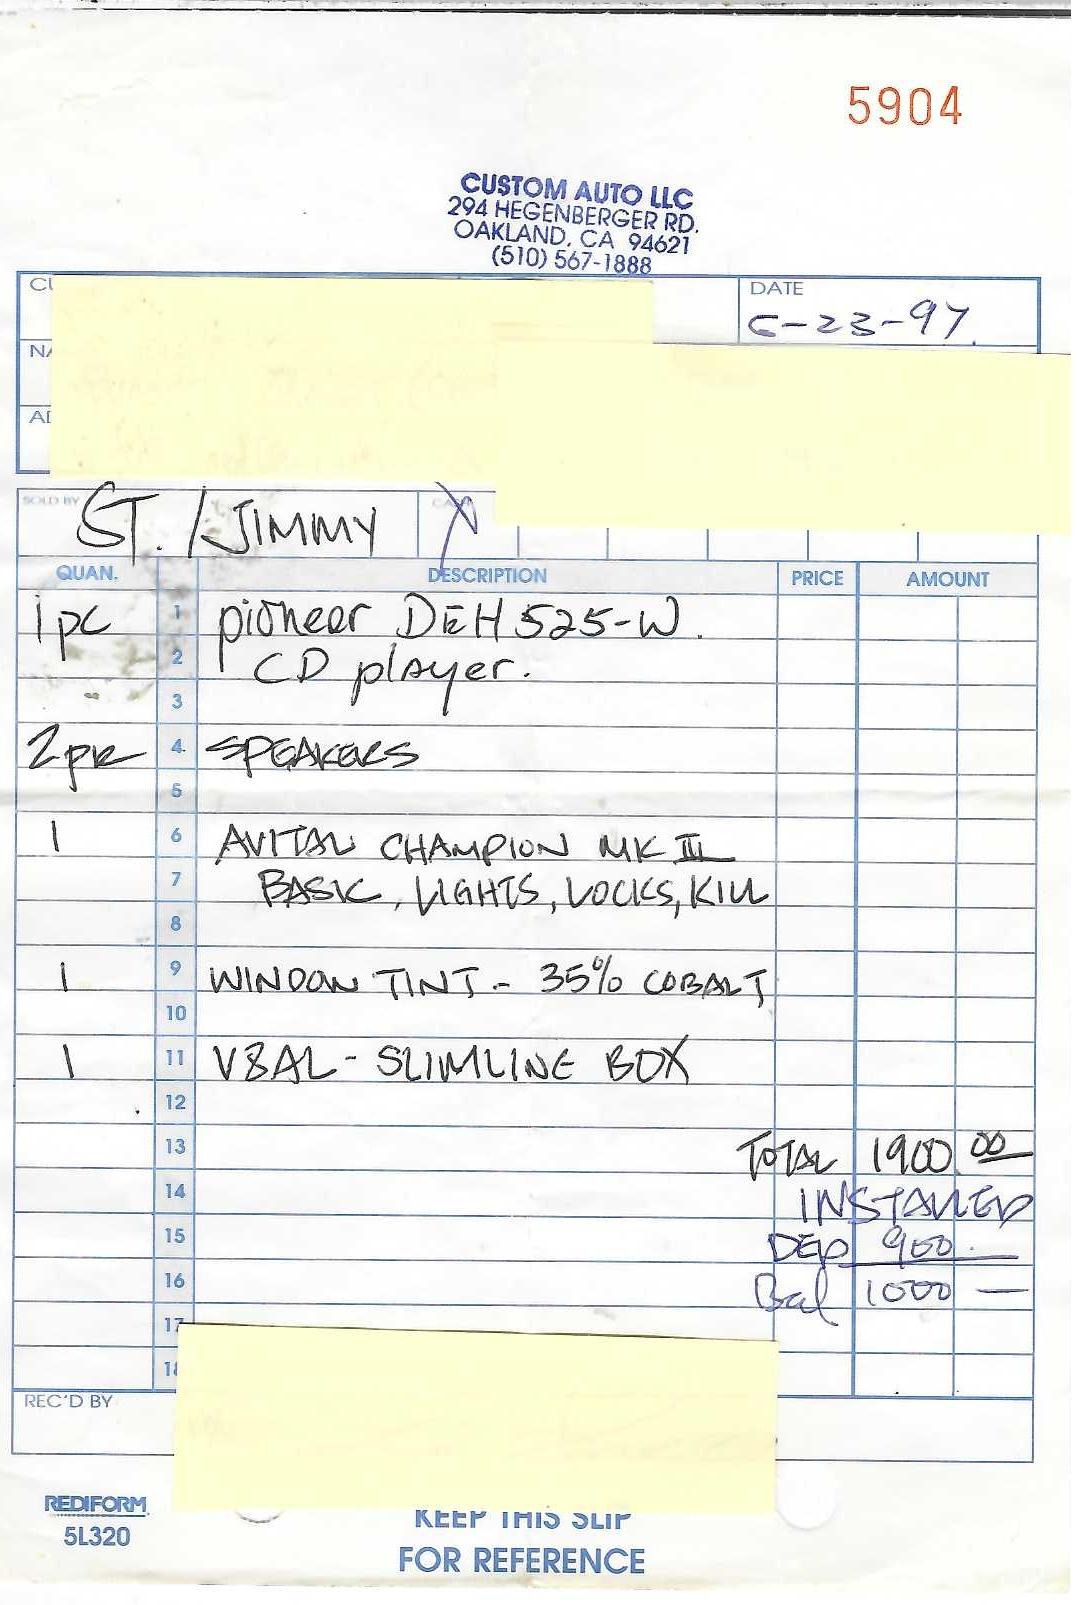 5904
CUSTOM AUTO LLC
294 HEGENBERGER RD.
OAKLAND, CA 94621
(510) 567-1888
DATE
6-23-97.
SOLD BY
ST. / JIMMY
CASH X
QUAN. DESCRIPTION PRICE AMOUNT
1 pc 1 pioneer DEH 525-W.
2 CD player.
3
2 pr 4 SPEAKERS
5
1 6 AVITAL CHAMPION MK III
7 BASIC, LIGHTS, LOCKS, KILL
8
1 9 WINDOW TINT - 35% COBALT
10
1 11 V8AL - SLIMLINE BOX
12
13 TOTAL 1900.00
14 INSTALLED
15 DEP 900.—
16 Bal 1000 —
17
18
REC'D BY
REDIFORM
5L320
KEEP THIS SLIP
FOR REFERENCE